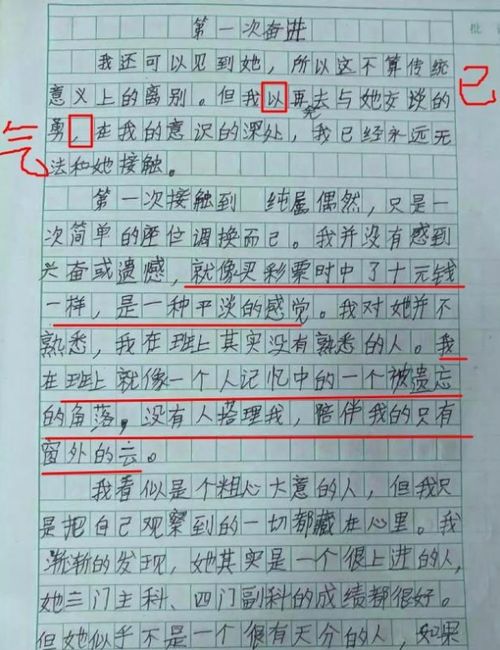 批
第一次奋进
我还可以见到她，所以这不算传统
意义上的离别。但我以再去与她交谈的
已
勇，在我的意识的深处，我已经永远无
气
法和她接触。
第一次接触到 纯属偶然，只是一
次简单的座位调换而已。我并没有感到
兴奋或遗憾，就像买彩票时中了十元钱
一样，是一种平淡的感觉。我对她并不
熟悉，我在班上其实没有熟悉的人。我
在班上就像一个人记忆中的一个被遗忘
的角落，没有人搭理我，陪伴我的只有
窗外的云。
我看似是个粗心大意的人，但我只
是把自己观察到的一切都藏在心里。我
渐渐的发现，她其实是一个很上进的人，
她三门主科、四门副科的成绩都很好。
但她似乎不是一个很有天分的人，如果